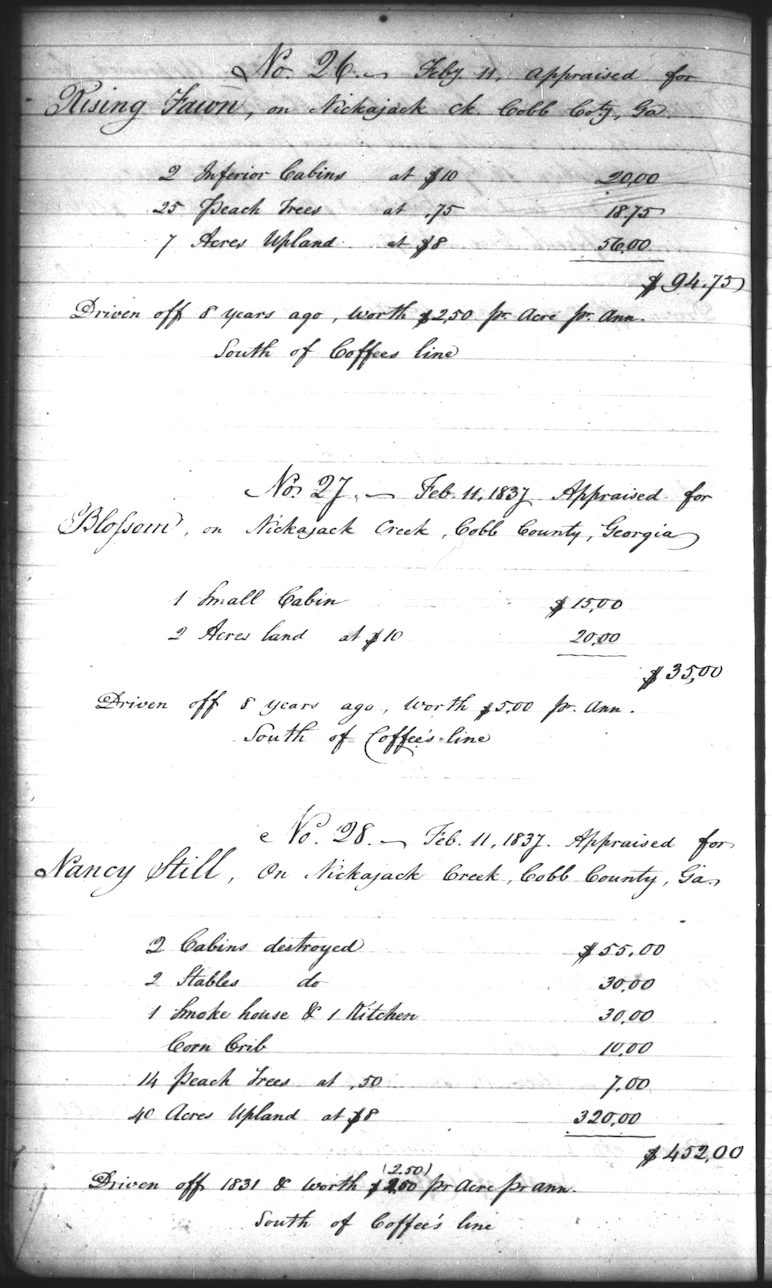 No. 26. Feby 11, Appraised for
Rising Fawn, on Nickajack ck. Cobb Coty, Ga.
2 Inferior Cabins at $10 20,00
25 Peach Trees at .75 18.75
7 Acres Upland at $8 56.00
$94.75
Driven off 8 years ago, worth $2,50 pr. Acre pr. Ann.
South of Coffees line
No. 27. Feb. 11, 1837. Appraised for
Blossom, on Nickajack Creek, Cobb County, Georgia
1 Small Cabin $15,00
2 Acres land at $10 20,00
$35,00
Driven off 8 years ago, worth $5,00 pr. Ann.
South of Coffee's line
No. 28. Feb. 11, 1837. Appraised for
Nancy Still, On Nickajack Creek, Cobb County, Ga.
2 Cabins destroyed $55.00
2 Stables do 30.00
1 Smoke house & 1 Kitchen 30,00
Corn Crib 10,00
14 Peach Trees at .50 7.00
40 Acres Upland at $8 320,00
$452,00
(2.50)
Driven off 1831 & worth $2,00 pr Acre pr ann.
South of Coffee's line